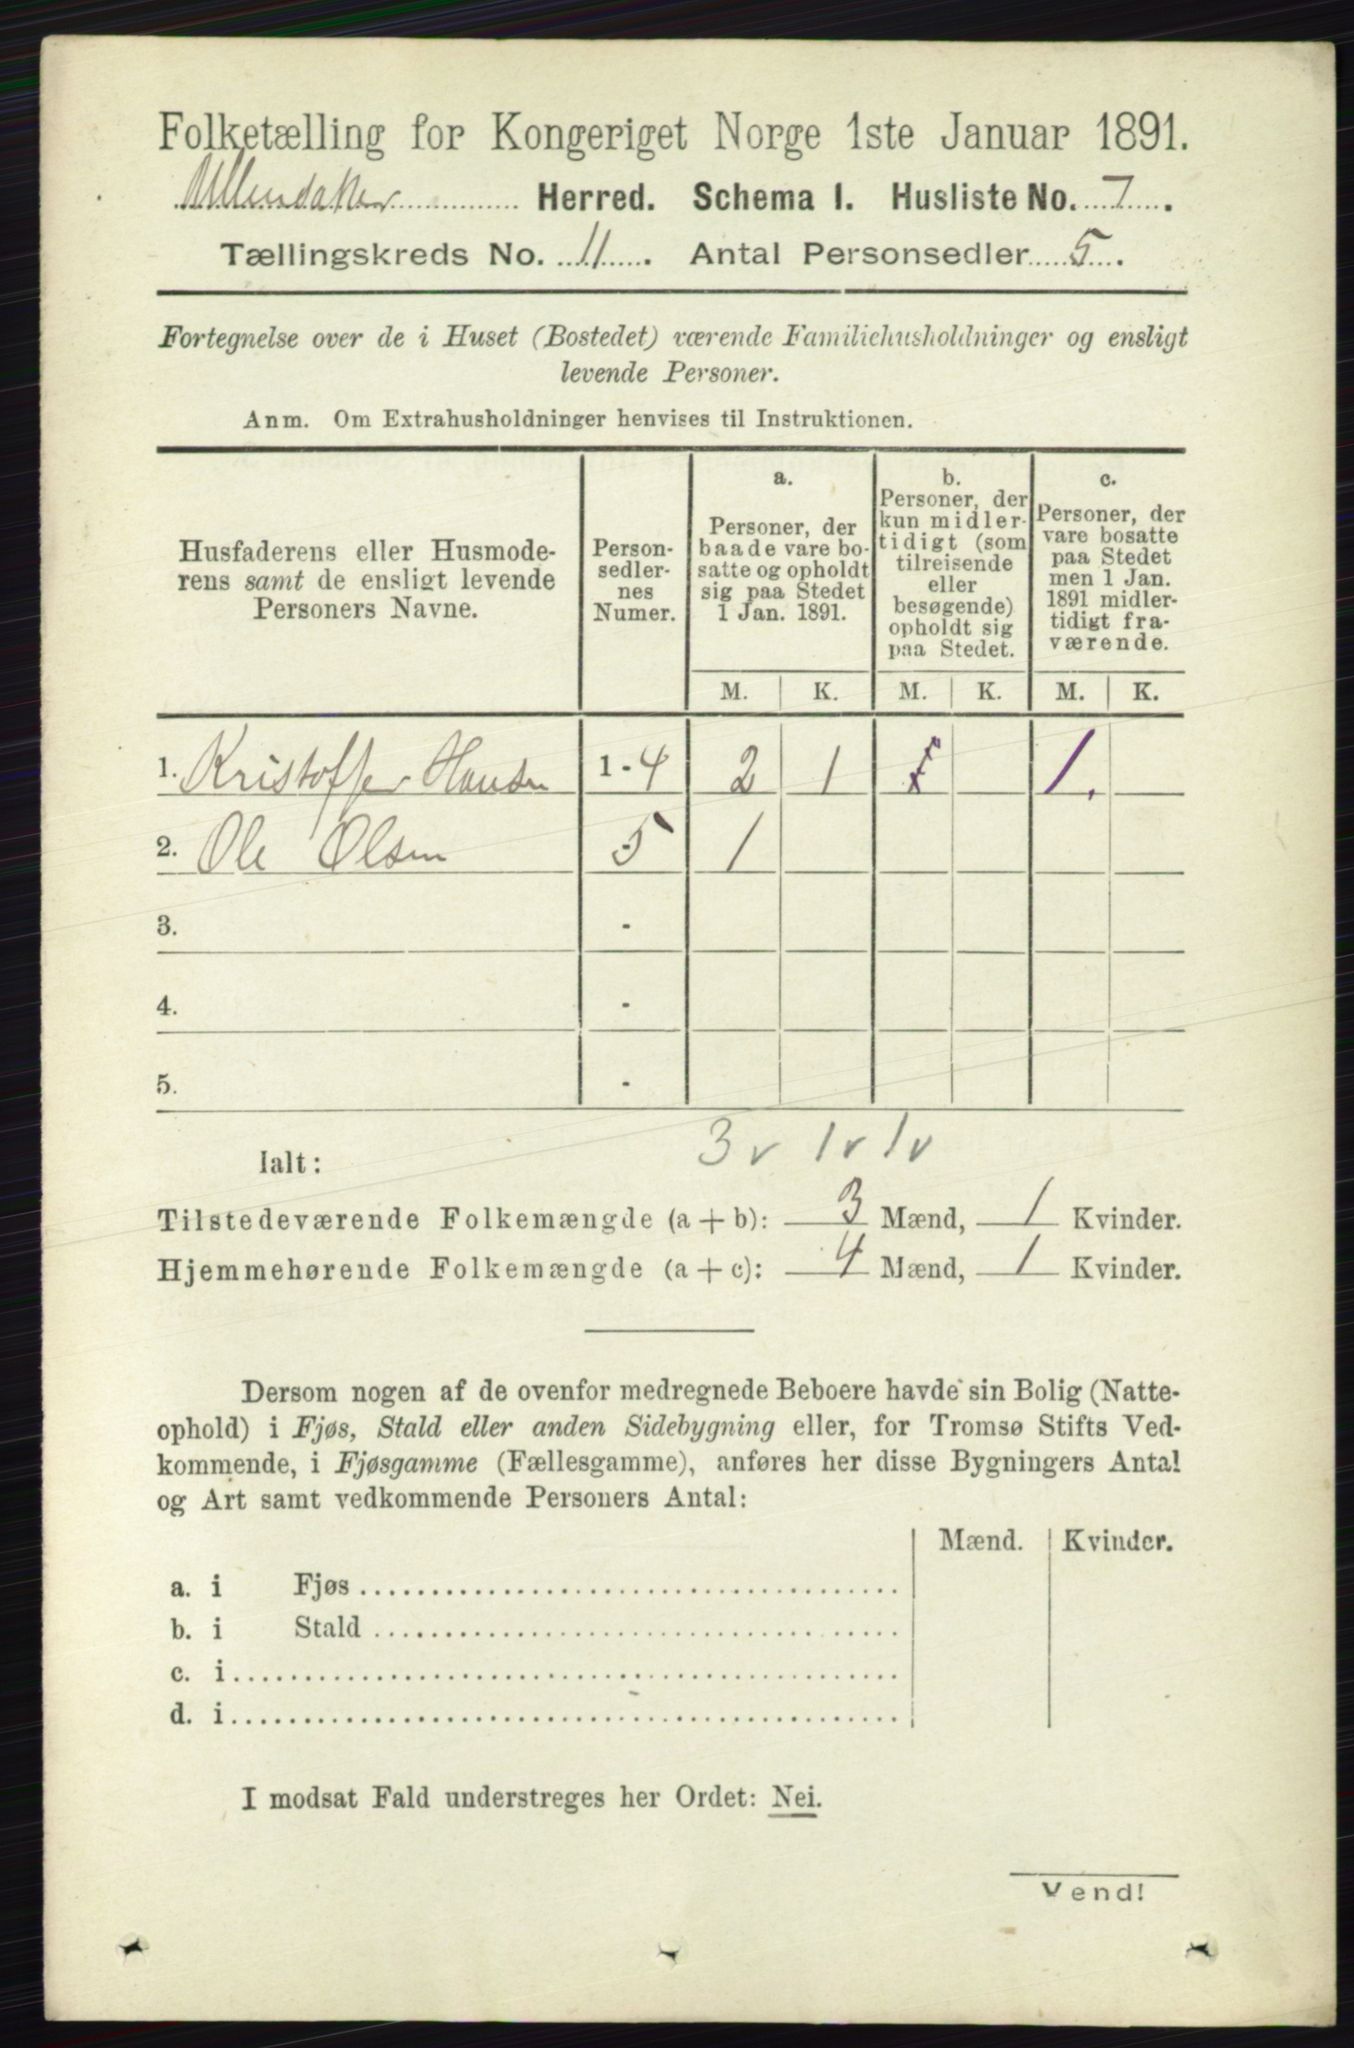 Folketælling for Kongeriget Norge 1ste Januar 1891.
Ullensaker Herred. Schema I. Husliste No. 7.
Tællingskreds No. 11. Antal Personsedler 5.
Fortegnelse over de i Huset (Bostedet) værende Familiehusholdninger og ensligt
levende Personer.
Anm. Om Extrahusholdninger henvises til Instruktionen.
Husfaderens eller Husmode-
rens samt de ensligt levende
Personers Navne.
Person-
sedler-
nes
Numer.
a.
Personer, der
baade vare bo-
satte og opholdt
sig paa Stedet
1 Jan. 1891.
b.
Personer, der
kun midler-
tidigt (som
tilreisende
eller
besøgende)
opholdt sig
paa Stedet.
c.
Personer, der
vare bosatte
paa Stedet
men 1 Jan.
1891 midler-
tidigt fra-
værende.
M. K. M. K. M. K.
1. Kristoffer Hansen 1 - 4 2 1 1 1.
2. Ole Olsen 5 1
3. -
4. -
5. -
3 v 1 v 1 v
Ialt:
Tilstedeværende Folkemængde (a + b): 3 Mænd, 1 Kvinder.
Hjemmehørende Folkemængde (a + c): 4 Mænd, 1 Kvinder.
Dersom nogen af de ovenfor medregnede Beboere havde sin Bolig (Natte-
ophold) i Fjøs, Stald eller anden Sidebygning eller, for Tromsø Stifts Ved-
kommende, i Fjøsgamme (Fællesgamme), anføres her disse Bygningers Antal
og Art samt vedkommende Personers Antal:
Mænd. Kvinder.
a. i Fjøs
b. i Stald
c. i
d. i
I modsat Fald understreges her Ordet: Nei.
Vend!